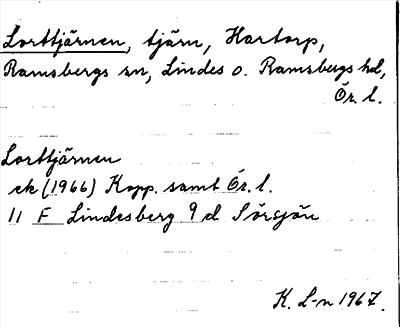 Lorttjärnen, tjärn, Hartorp,
Ramsbergs sn, Lindes o. Ramsbergs hd,
Ör. l.
Lorttjärnen
ek (1966) Kopp. samt Ör. l.
11 F Lindesberg 9 d Sörsjön
K. L-n 1967.